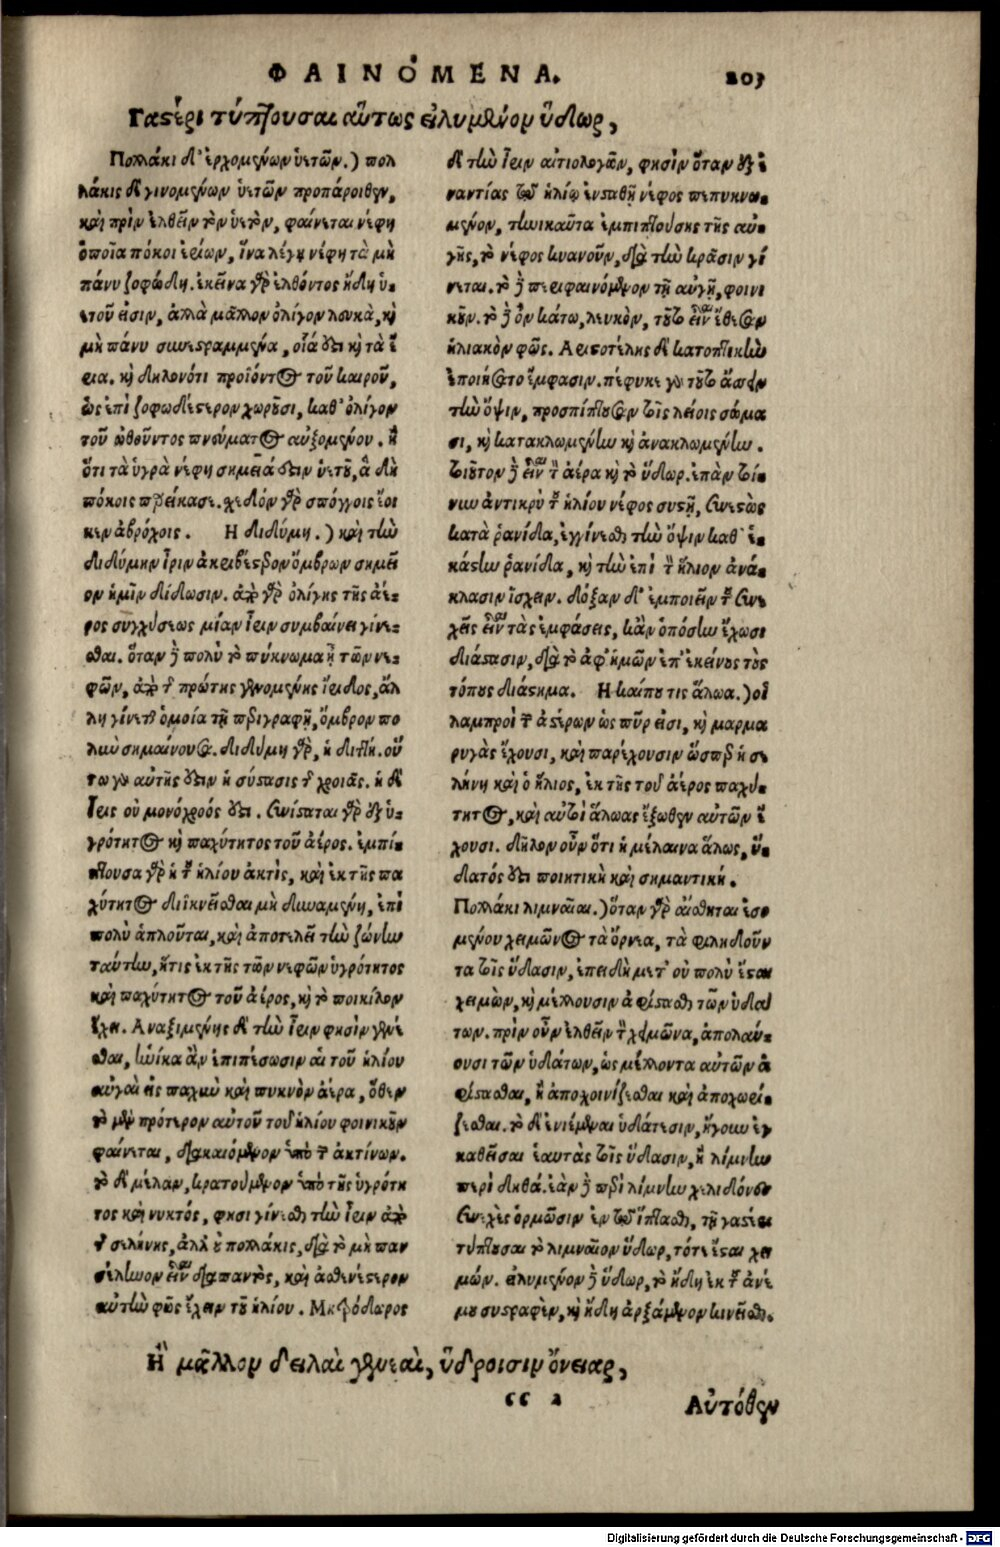 ΦΑΙΝΌΜΕΝΑ.
203
Γαστέρι τύπτουσαι αὔτως εἰλυμένον ὕδωρ,
Πολλάκι δ' ἐρχομένων ὑετῶν.) πολ
λάκις δὲ γινομένων ὑετῶν προπάροιθεν,
καὶ πρὶν ἐλθεῖν τὸν ὑετὸν, φαίνεται νέφη
ὁποῖα πόκοι ἐρίων, ἵνα λέγῃ νέφη τὰ μὴ
πάνυ ζοφώδη. ἐκεῖνα γὰρ ἐλθόντος ἤδη ὑ-
ετοῦ εἰσιν, ἀλλὰ μᾶλλον ὀλίγον λευκὰ, καὶ
μὴ πάνυ συνεστραμμένα, οἷά ἐστι καὶ τὰ ἔ
ρια. καὶ δηλονότι προϊόντος τοῦ καιροῦ,
ὡς ἐπὶ ζοφωδέστερον χωροῦσι, καθ' ὀλίγον
τοῦ ὠθοῦντος πνεύματος αὐξομένου. ἢ
ὅτι τὰ ὑγρὰ νέφη σημεῖά ἐστιν ὑετοῦ, ἃ δὴ
πόκοις προσείκασε. σχεδὸν γὰρ σπόγγοις ἔοι
κεν ἀβρόχοις. Ἡ διδύμη.) καὶ τὴν
διδύμην ἶριν ἀκριβέστερον ὄμβρων σημεῖ
ον ἡμῖν δίδωσιν. ἀπὸ γὰρ ὀλίγης τῆς ἀέ-
ρος συγχύσεως μίαν ἶριν συμβαίνει γίνε-
σθαι. ὅταν δὲ πολὺ τὸ πύκνωμα ᾖ τῶν νε-
φῶν, ἀπὸ τῆς πρώτης γενομένης ἴριδος, ἄλ
λη γίνεται ὁμοία τῇ περιγραφῇ, ὄμβρον πο
λὺν σημαίνουσα. διδύμη γὰρ, ἡ διπλῆ. οὕ
τω γὰρ αὐτῆς ἐστιν ἡ σύστασις τῆς χροιᾶς. ἡ δὲ
Ἶρις οὐ μονόχροός ἐστι. συνίσταται γὰρ ἐξ ὑ-
γρότητος καὶ παχύτητος τοῦ ἀέρος. ἐμπί-
πτουσα γὰρ ἡ τοῦ ἡλίου ἀκτὶς, καὶ ἐκ τῆς πα
χύτητος διϊκνεῖσθαι μὴ δυναμένη, ἐπὶ
πολὺ ἁπλοῦται, καὶ ἀποτελεῖ τὴν ζώνην
ταύτην, ἥτις ἐκ τῆς τῶν νεφῶν ὑγρότητος
καὶ παχύτητος τοῦ ἀέρος, καὶ τὸ ποικίλον
ἔχει. Ἀναξιμένης δὲ τὴν ἶριν φησὶν γενέ
σθαι, ἡνίκα ἂν ἐπιπέσωσιν αἱ τοῦ ἡλίου
αὐγαὶ εἰς παχὺν καὶ πυκνὸν ἀέρα, ὅθεν
τὸ μὲν πρότερον αὐτοῦ τοῦ ἡλίου φοινικοῦν
φαίνεται, διακαιόμενον ὑπὸ τῶν ἀκτίνων.
τὸ δὲ μέλαν, κρατούμενον ὑπὸ τῆς ὑγρότη
τος καὶ νυκτός, φησι γίνεσθαι τὴν ἶριν ἀπὸ
τῆς σελήνης, ἀλλ' οὐ πολλάκις, διὰ τὸ μὴ παν
σέληνον εἶναι διαπαντὸς, καὶ ἀσθενέστερον
αὐτὴν φῶς ἔχειν τοῦ ἡλίου. Μητρόδωρος
δὲ τὴν ἶριν αἰτιολογῶν, φησὶν ὅταν ἐξ ἐ
ναντίας τῷ ἡλίῳ ἐνσταθῇ νέφος πεπυκνω-
μένον, τηνικαῦτα ἐμπιπτούσης τῆς αὐ-
γῆς, τὸ νέφος κυανοῦν, διὰ τὴν κρᾶσιν γί
νεται. τὸ δὲ περιφαινόμενον τῇ αὐγῇ, φοινι
κοῦν. τὸ δὲ ὂν κάτω, λευκὸν, τοῦτο εἶναι ἔθεσαν
ἡλιακὸν φῶς. Ἀριστοτέλης δὲ κατοπτικὴν
ἐποιήσατο ἔμφασιν. πέφυκε γὰρ τοῦτο πάσχειν
τὴν ὄψιν, προσπίπτουσαν τοῖς λείοις σώμα
σι, καὶ κατακλωμένην καὶ ἀνακλωμένην.
τοιοῦτον δὲ εἶναι τὸν ἀέρα καὶ τὸ ὕδωρ. ἐπὰν τοί-
νυν ἀντικρὺ τοῦ ἡλίου νέφος συστῇ, συνεχῶς
κατὰ ῥανίδα, ἐγγίνεσθαι τὴν ὄψιν καθ' ἑ-
κάστην ῥανίδα, καὶ τὴν ἐπὶ τὸν ἥλιον ἀνά-
κλασιν ἴσχειν. δόξαν δ' ἐμποιεῖν τοῦ συνε
χεῖς εἶναι τὰς ἐμφάσεις, κἂν ὁπόσην ἔχωσι
διάστασιν, διὰ τὸ ἀφ' ἡμῶν ἐπ' ἐκείνους τοὺς
τόπους διάστημα. Ἢ καί πού τις ἅλωα.) οἱ
λαμπροὶ τῶν ἀστέρων ὡς πῦρ εἰσι, καὶ μαρμα
ρυγὰς ἔχουσι, καὶ παρέχουσιν ὥσπερ ἡ σε
λήνη καὶ ὁ ἥλιος, ἐκ τῆς τοῦ ἀέρος παχύ-
τητος, καὶ αὐτοὶ ἅλωας ἔξωθεν αὐτῶν ἔ
χουσι. δῆλον οὖν ὅτι ἡ μέλαινα ἅλως, ὕ-
δατός ἐστι ποιητικὴ καὶ σημαντική.
Πολλάκι λιμναῖαι.) ὅταν γὰρ αἴσθηται ἐσο
μένου χειμῶνος τὰ ὄρνια, τὰ φιληδοῦν
τα τοῖς ὕδασιν, ἐπειδὴ μετ' οὐ πολὺ ἔσται
χειμὼν, καὶ μέλλουσιν ἀφίστασθαι τῶν ὑδά
των. πρὶν οὖν ἐλθεῖν τὸν χειμῶνα, ἀπολαύ-
ουσι τῶν ὑδάτων, ὡς μέλλοντα αὐτῶν ἀ
φίστασθαι, ἢ ἀποχοινίζεσθαι καὶ ἀποχωρί-
ζεσθαι. τὸ δὲ ἐνιέμεναι ὑδάτεσιν, ἤγουν ἐγ
καθεῖσαι ἑαυτὰς τοῖς ὕδασιν, ἢ λίμνην
περὶ δηθά. ἐὰν δὲ περὶ λίμνην χελιδόνες
συνεχὲς ὁρμῶσιν ἐν τῷ ἵπτασθαι, τῇ γαστέρι
τύπτουσαι τὸ λιμναῖον ὕδωρ, τότε ἔσται χει
μών. εἰλυμένον δὲ ὕδωρ, τὸ ἤδη ἐκ τοῦ ἀνέ
μου συστραφὲν, καὶ ἤδη ἀρξάμενον κινεῖσθαι.
Ἢ μᾶλλον δειλαὶ γενεαὶ, ὕδροισιν ὄνειαρ,
cc 2
Αὐτόθεν
Digitalisierung gefördert durch die Deutsche Forschungsgemeinschaft - DFG